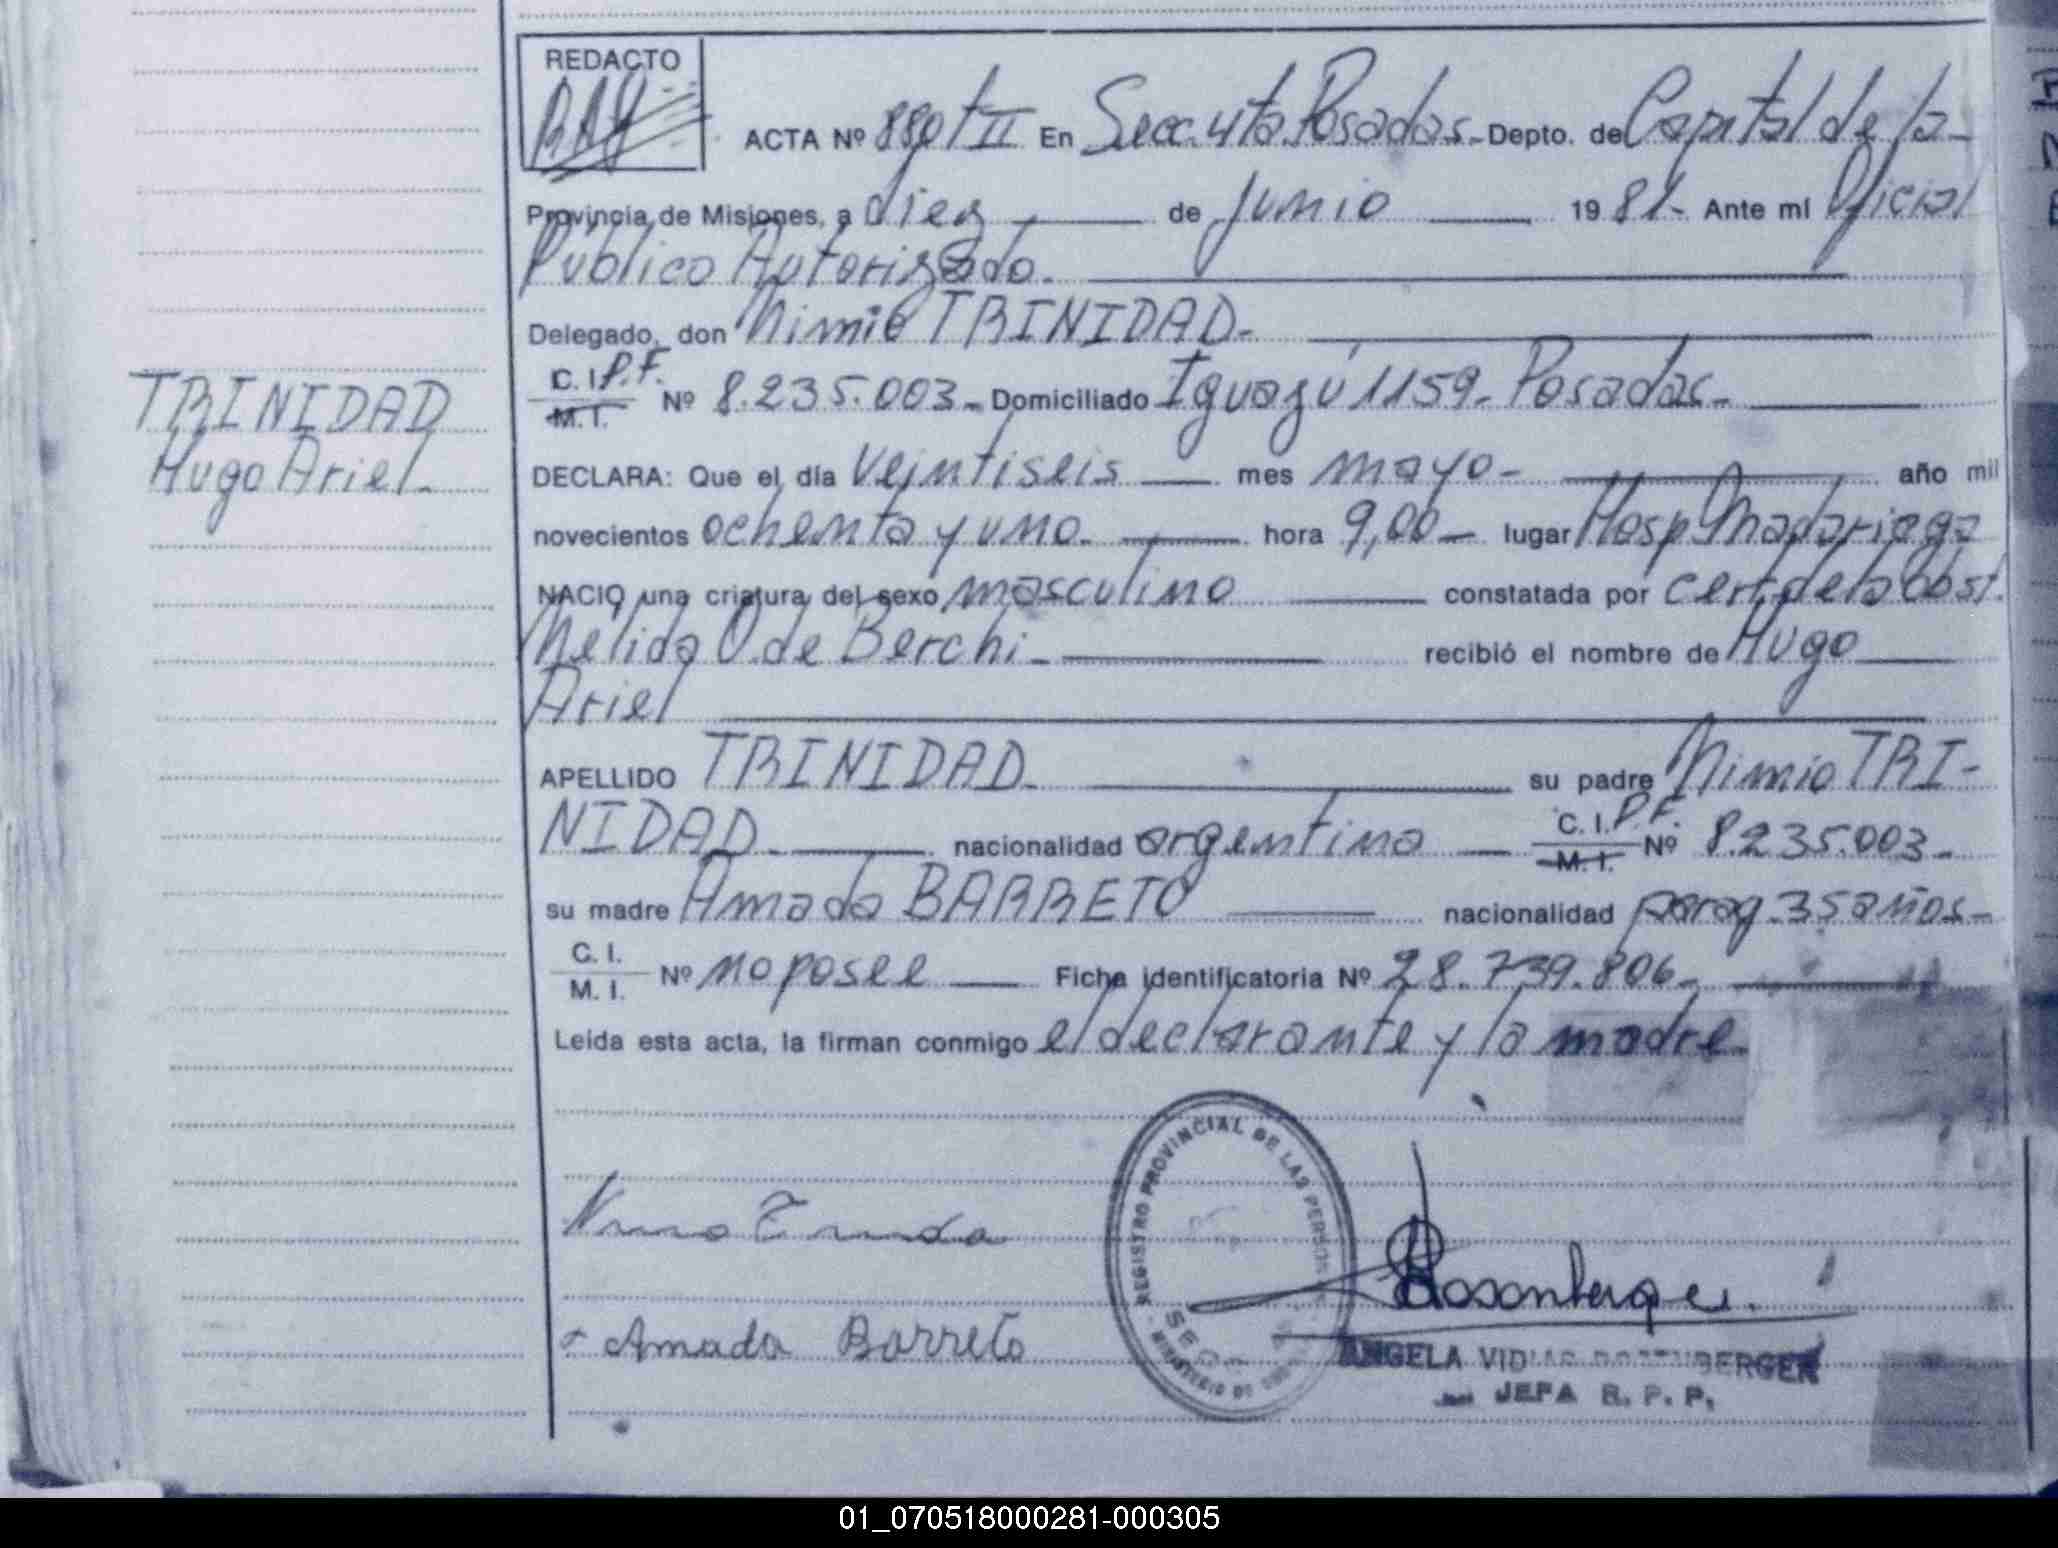 REDACTO
ACTA Nº 880 T II En Secc. 4ta. Posadas - Depto. de Capital de la
Provincia de Misiones, a diez de junio 1981.- Ante mí Oficial
Público Autorizado.
Delegado, don Nimio TRINIDAD.
C. I. P.F.
M. I.
Nº 8.235.003 - Domiciliado Iguazú 1159 - Posadas -
TRINIDAD
Hugo Ariel -
DECLARA: Que el día veintiseis mes mayo - año mil
novecientos ochenta y uno. hora 9,00 lugar Hosp Madariaga
NACIO una criatura del sexo masculino constatada por cert. de la obst.
Nelida O. de Berchi - recibió el nombre de Hugo
Ariel
APELLIDO TRINIDAD su padre Nimio TRI-
NIDAD - nacionalidad argentina C. I. P.F.
M. I. Nº 8.235.003 -
su madre Amada BARRETO nacionalidad parag. 35 años -
C. I.
M. I. Nº no posee Ficha identificatoria Nº 28.739.806 -
Leída esta acta, la firman conmigo el declarante y la madre
REGISTRO PROVINCIAL DE LAS PERSONAS
MINISTERIO DE
Rosenberger
Amada Barreto
ANGELA ROSENBERGER
JEFA R. P. P.
01_070518000281-000305